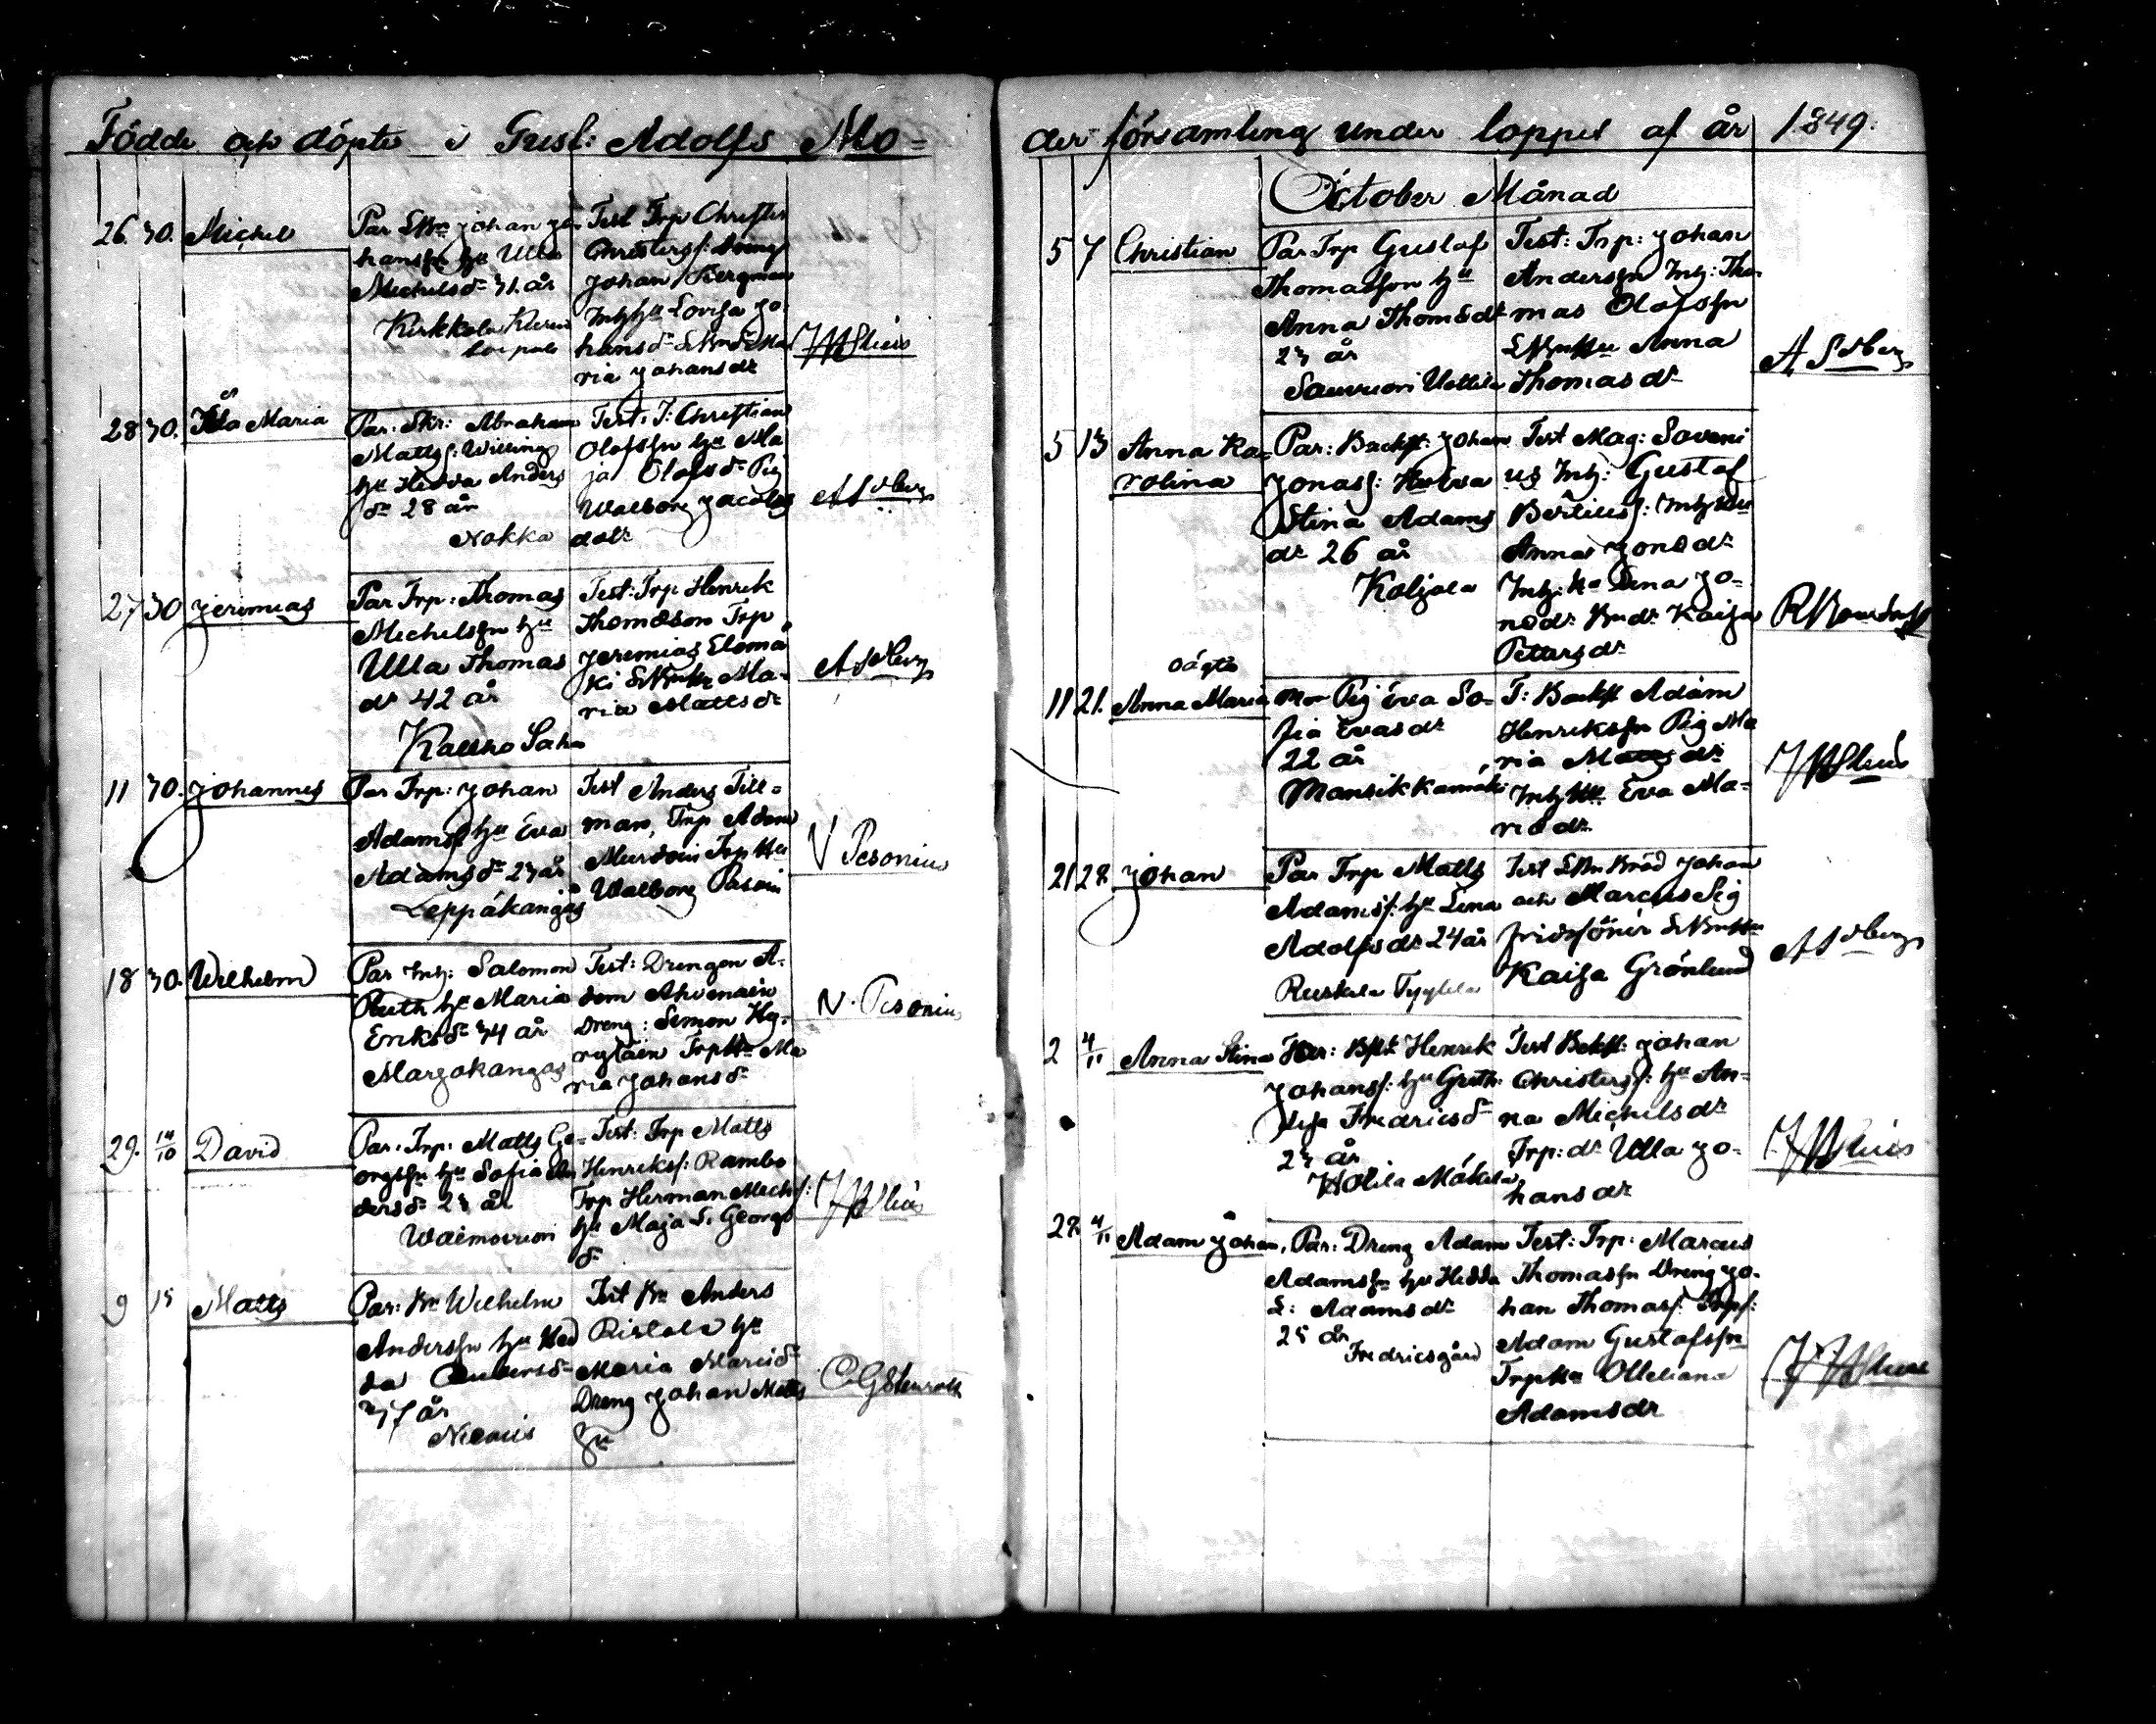 Födde och döpte i Gust: Adolfs Mo=
26. 30. Michel
Par Skr Johan Jo
hansfn hu Ulla
Michelsdr 31. år
Kirkkola
Test Trp Christer
Christersf: Dreng
Johan Bergman
Inhhu Lovisa Jo
hansdr
ria Johansdr
28 30. Ida Maria
Par: Skr: Abraham
Mattsf: Willing
hu Hedda Anders
dr 28 år
Nokka
Test: T: Christian
Olofsfn hu Ma
ja Olofsdr Pig
Walborg Jacobs
dotr
27 30 Jeremias
Par Trp: Thomas
Michelsfn hu
Ulla Thomas
dr 42 år
Test: Trp Henrik
Thomasson Trp
Jeremias Elomä
ki Ma-
ria Mattsdr
11 30. Johannes
Par Trp: Johan
Adamsf hu Eva
Adamsdr 23 år
Leppäkangas
Test Anders Till=
man, Trp Adam
Murdoin Trp hu
Walborg Pasoin
V Pesonius
18 30. Wilhelm
Par Inh: Salomon
Ruth hu Maria
Eriksdr 34 år
Marjokangas
Test: Drengen A-
dam Ahvenain
Dreng: Simon Hy-
rylain Trphu Ma
ria Johansdr
V. Pesonius
29. 14/10 David
Par. Trp: Matts Ge-
orgsfn hu Sofia An
dersdr 23 år
Waimovuori
Test: Trp Matts
Henriksf: Rambo
Trp Herman Michsf:
hu Maja S. Georgs
dr
9 15 Matts
Par: Bn Wilhelm
Andersfn hu Hed
da Andersdr
37 år
Niemis
Test Bn Anders
Ristola hu
Maria Marcidr
Dreng Johan Matts
fn
C. G Stenroth
der församling under loppet af år 1849.
October Månad
5 7 Christian
Par Trp Gustaf
Thomasson hu
Anna Thomsdr
23 år
Sauvuori Uottila
Test: Trp: Johan
Andersfn Inh: Tho
mas Olofsfn
Anna
Thomasdr
5 13 Anna Ka=
rolina
Par: Backst: Johan
Jonasf: Hu Eva
Stina Adams
dr 26 år
Koljala
Test Mag: Saveni
us Inh: Gustaf
Bertilsf: Inh hu
Anna Jonsdr
Inh: hu Lena Jo-
nasdr Bndr Kaisa
Pettersdr
oägta
11 21. Anna Maria
Mor Pig Eva So-
fia Evasdr
22 år
Mansikkamäki
T: Backst Adam
Henriksfn Pig Ma
ria Mattsdr
Inh hu Eva Ma-
riadr
21 28. Johan
Par Trp Matts
Adamsf: hu Lena
Adolfsdr 24 år
Ruskala Tyyskelä
Test Johan
och Marcus Sig
fridssöner
Kaisa Grönlund
2 4/11 Anna Stina
Par: Bkst Henrik
Johansf: hu Greth:
Lisa Fredricsdr
23 år
Hotila Mäkelä
Test Bakst: Johan
Christersf: hu An=
na Michelsdr
Trp: dr Ulla Jo-
hansdr
28 4/11 Adam Johan.
Par: Dreng Adam
Adamsfn hu Hedda
L: Adamsdr
25 år
Fredricsgård
Test: Trp: Marcus
Thomasfn Dreng Jo-
han Thomasf: Trpf:
Adam Gustafsfn
Trphu Ulleliana
Adamsdr